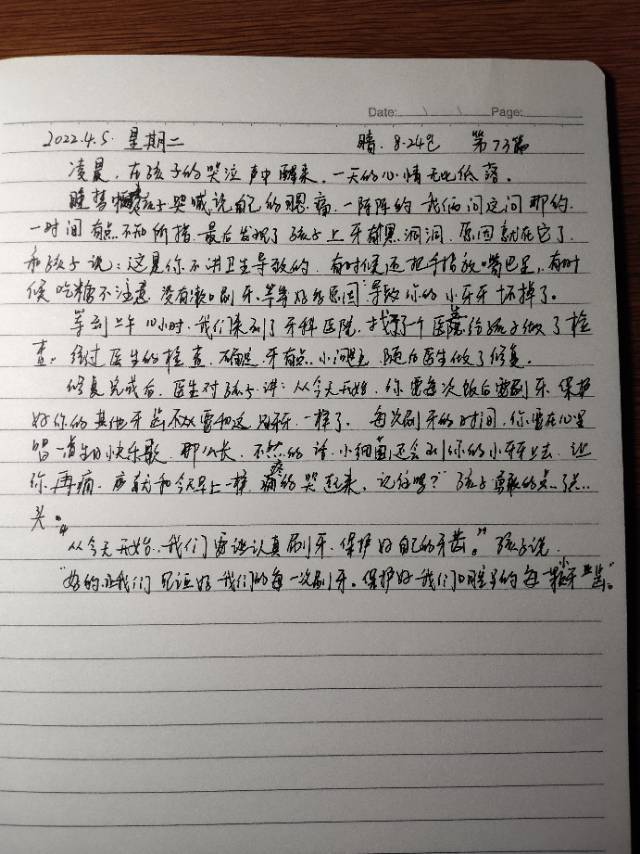 Date: \ \ Page:
2022.4.5. 星期二 晴. 8-24℃ 第73篇
凌晨,在孩子的哭泣声中醒来,一天的心情无比低落。
孩子哭喊说自己的嘴痛,一阵阵的,我俩问这问那的,
一时间有点不知所措,最后发现了孩子上牙都黑洞洞,原因就在它了,
和孩子说:这是你不讲卫生导致的,有时候还把手指放嘴巴里,有时
候吃糖不注意,没有漱口刷牙,等等好多原因导致你的小牙牙坏掉了。
等到上午10小时,我们来到了牙科医院,找了一个医生给孩子做了检
查。经过医生的检查,牙有点小问题,随后医生做了修复。
修复完成后,医生对孩子讲:从今天开始,你需每次饭后要刷牙,保护
好你的其他牙齿不要和这只牙牙一样了,每次刷牙的时间,你要在心里
唱一首生日快乐歌那么长,不然的话,小细菌还会到你的小牙牙上去,让
你再痛,疼就和今天早上一样痛的哭起来,记住吗?”孩子勇敢的点点
头。
“从今天开始,我们要认真刷牙,保护好自己的牙齿。”孩子说
“好的,让我们见证好我们的每一次刷牙,保护好我们口腔里的每一颗小牙齿。”